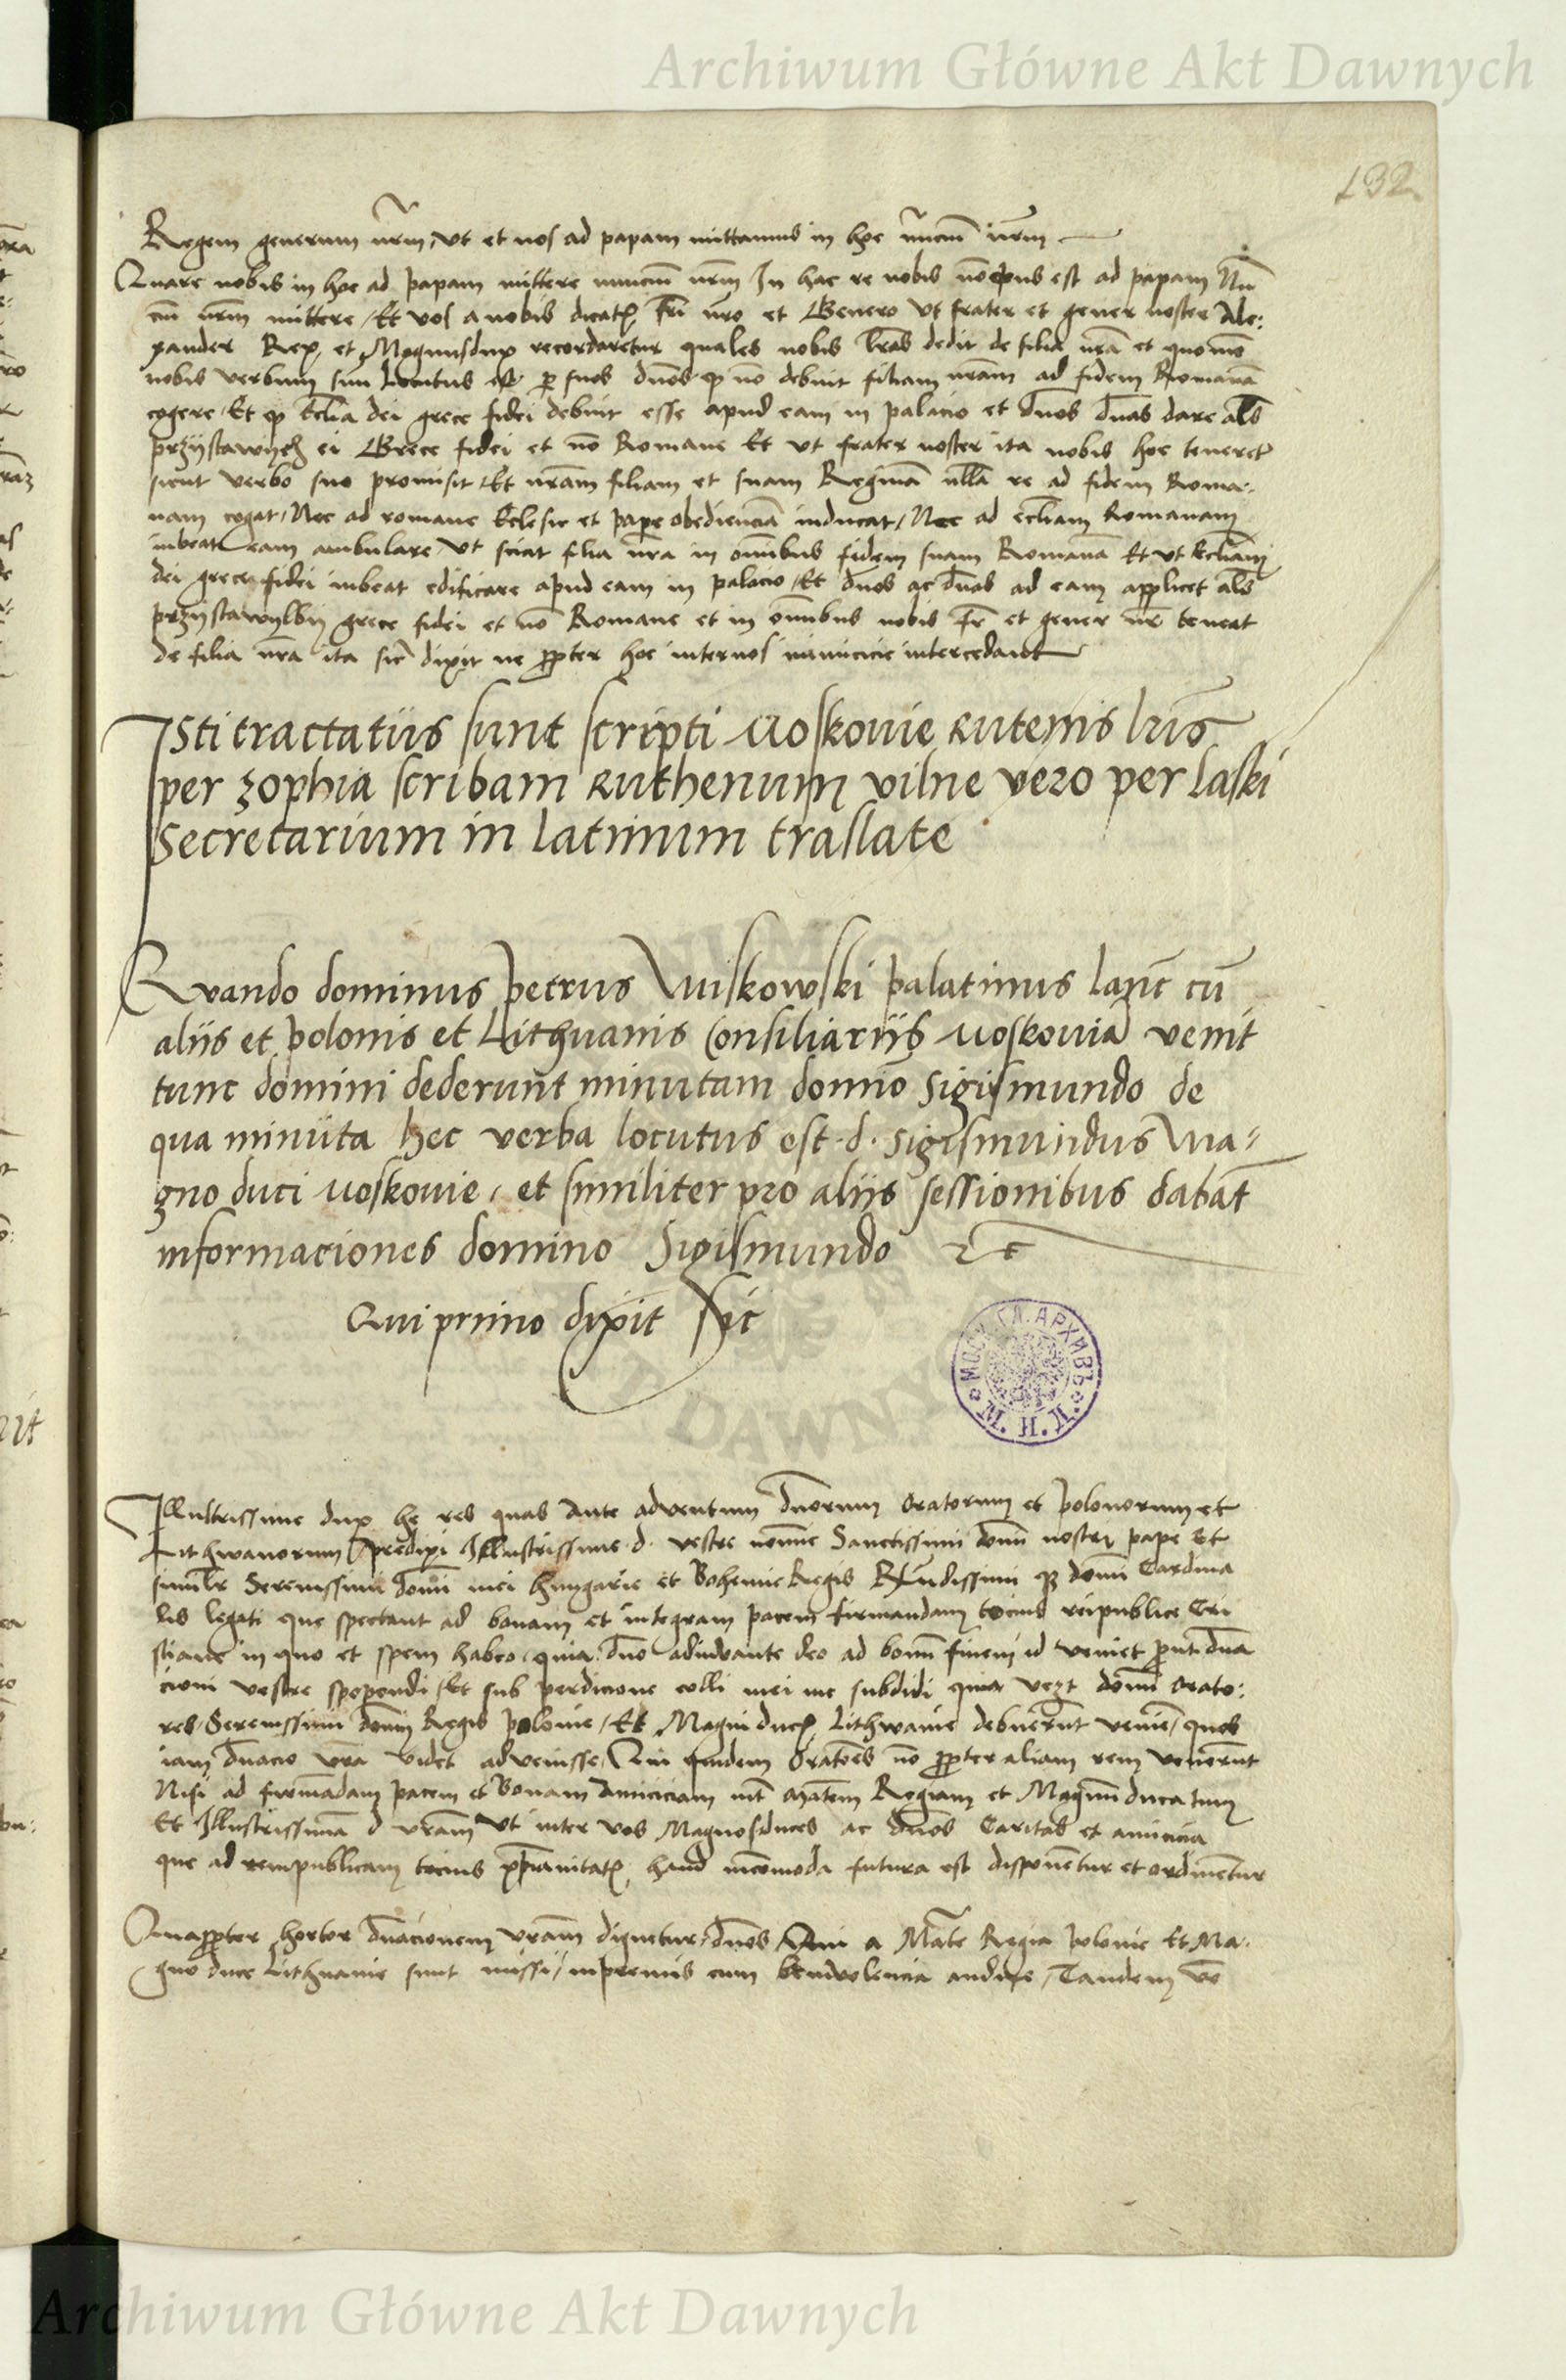 Archiwum Główne Akt Dawnych
132
Regem generum nrm, ut et nos ad papam mittamus in hoc nunciū nrm
Quare nobis in hoc ad papam mittere nunciū nrm In hac re nobis nō opus est ad papam Nū
ciū nrm mittere, Et vos a nobis dicatis fri nro et Genero ut frater et gener noster Ale:
xander Rex, et Magnusdux recordaretur quales nobis lras dedit de filia nra et quomō
nobis verbum suū locutus est per suos dnos q nō debuit filiam nram ad fidem Romanā
cogere, Et q Ecclia dei grece fidei debuit esse apud eam in palacio et dnos dnas dare als
przystawnych ei Grece fidei et nō Romane Et ut frater noster ita nobis hoc teneret
sicut verbo suo promisit Et nram filiam et suam Reginā nulla re ad fidem Roma-
nam cogat, Nec ad romane Eclesie et pape obedienciā inducat, Nec ad eccliam Romanam
iubeat eam ambulare, ut sciat filia nra in omibus fidem suam Romanā Et ut Eccliam
dei grece fidei iubeat edificare apud eam in palacio, Et dnos ac dnas ad eam applicet als
grece fidei et nō Romane et in omibus nobis fr et gener nr teneat
de filia nra ita sic dixit ne propter hoc internos inimicicie intercedant
Isti tractatus sunt scripti Moskovie Rutenis lris
per zophia scribam Ruthenum vilne vero per laski
secretarium in latinum traslate
Quando dominus petrus Miskowski palatinus lanc cū
aliis et polonis et Lithuanis Consiliariis Moskoviā venit
tunc domini dederunt minutam domino Sigismundo de
qua minuta hec verba locutus est .d. Sigismundus Ma-
gno duci Moskovie, et similiter pro aliis sessionibus dabāt
informaciones domino Sigismundo etc
Qui primo dixit sic
МОСК. ГЛ. АРХИВЪ
М. И. Д.
Illustrissime dux he res quas ante adventum dnorum Oratorum et polonorum et
Lithwanorum predixi Illustrissime .d. vestre nomine Sanctissimi domi nostri pape Et
simlr Serenissimi domi mei hungarie et Bohemie Regis Rndissimi q domi Cardina
lis legati que spectant ad bonam et integram pacem firmandam tocius reipublice Cri
stiane in quo et spem habeo, quia dno adiuvante deo ad bonū finem id veniet prout dna
cioni vestre spopondi, Et sub perdicione colli mei me subdidi quia domi orato:
res, Serenissimi domi Regis polonie, Et Magni ducis Lithwanie debuerūt venire, quos
iam dnacio vra videt advenisse, Qui quidem Oratores nō propter aliam rem venerūt
Nisi ad firmādam pacem et Bonam Amiciciam int Matem Regiam et Magnū ducatum
Et Illustrissimā d vram ut inter vos Magnosduces ac dnos Caritas et amicicia
que ad rempublicam tocius xpianitatis haud incōmoda futura est disponētur et ordinētur
Quapropter hortor dnacionem vram dignetur, dnos Qui a Mate Regia polonie Et Ma-
gno duce Lithuanie sunt missi, inprimis cum benivolencia audire, Tandem vō
Archiwum Główne Akt Dawnych